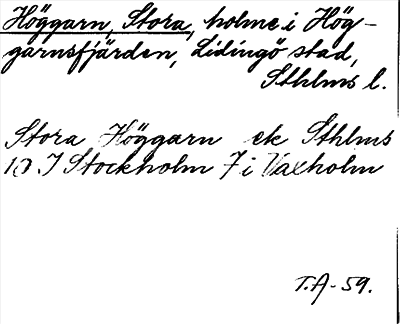 Höggarn, Stora, holme i Hög-
garnsfjärden, Lidingö stad,
Sthlms l.
Stora Höggarn ek Sthlms
10 I Stockholm 7 i Vaxholm
T.A-59.